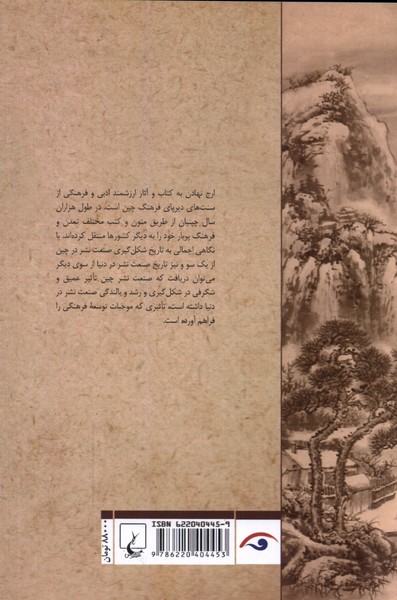 ارج نهادن به کتاب و آثار ارزشمند ادبی و فرهنگی از
سنت‌های دیرپای فرهنگ چین است. در طول هزاران
سال چینیان از طریق متون و کتب مختلف تمدن و
فرهنگ پربار خود را به دیگر کشورها منتقل کرده‌اند. با
نگاهی اجمالی به تاریخ شکل‌گیری صنعت نشر در چین
از یک سو و نیز تاریخ صنعت نشر در دنیا از سوی دیگر
می‌توان دریافت که صنعت نشر چین تأثیر عمیق و
شگرفی در شکل‌گیری و رشد و بالندگی صنعت نشر در
دنیا داشته است، تأثیری که موجبات توسعهٔ فرهنگی را
فراهم آورده است.
ISBN 622040445-9
9 786220 404453
۸۸۰۰۰ تومان